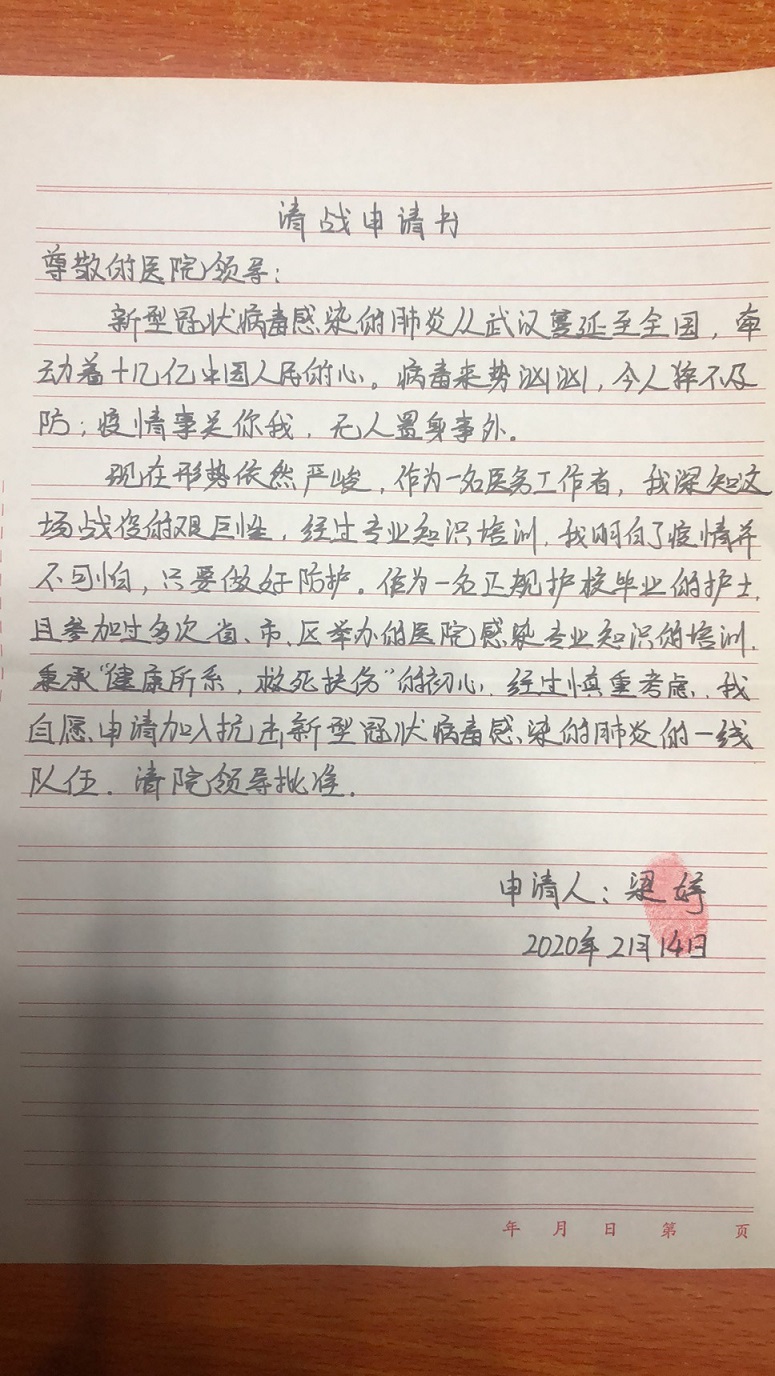 请战申请书
尊敬的医院领导：
新型冠状病毒感染的肺炎从武汉蔓延至全国，牵
动着十几亿中国人民的心。病毒来势汹汹，令人猝不及
防；疫情事关你我，无人置身事外。
现在形势依然严峻，作为一名医务工作者，我深知这
场战役的艰巨性，经过专业知识培训，我明白了疫情并
不可怕，只要做好防护。作为一名正规护校毕业的护士，
且参加过多次省、市、区举办的医院感染专业知识的培训，
秉承“健康所系，救死扶伤”的初心，经过慎重考虑，我
自愿申请加入抗击新型冠状病毒感染的肺炎的一线
队伍。请院领导批准。
申请人：梁婷
2020年2月14日
年 月 日 第 页